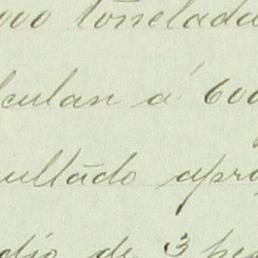 000 tonelada
lculan á 600
sultado apro
dio de 3 pe